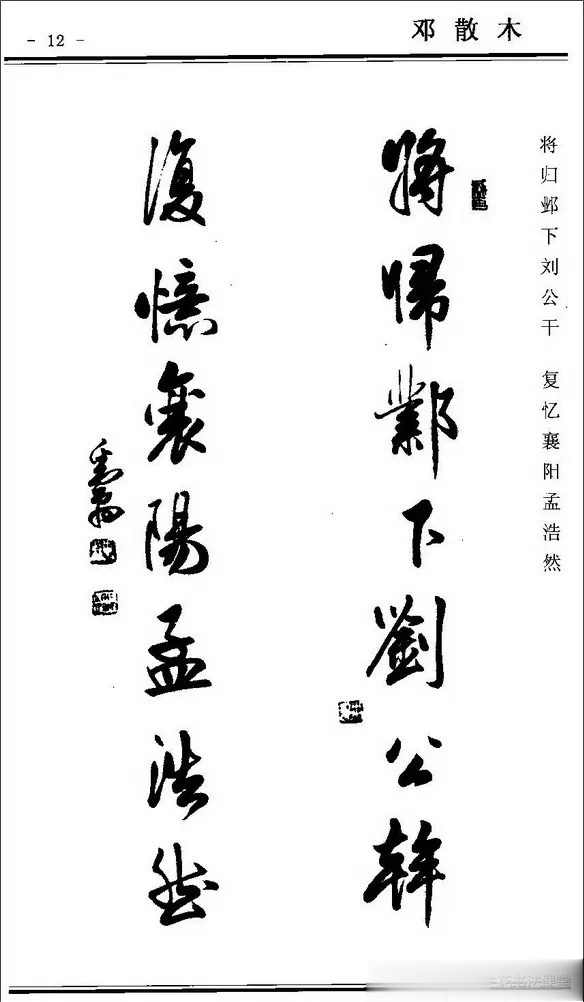 - 12 -
邓散木
将归邺下刘公干 复忆襄阳孟浩然
將歸鄴下劉公幹
復憶襄陽孟浩然